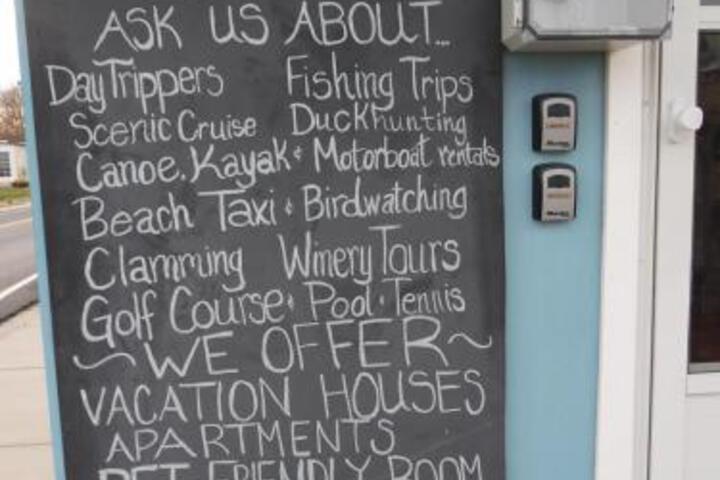 ASK US ABOUT...
Day Trippers Fishing Trips
Scenic Cruise Duckhunting
Canoe, Kayak & Motorboat rentals
Beach Taxi & Birdwatching
Clamming Winery Tours
Golf Course · Pool · Tennis
~WE OFFER~
VACATION HOUSES
APARTMENTS
PET FRIENDLY ROOM